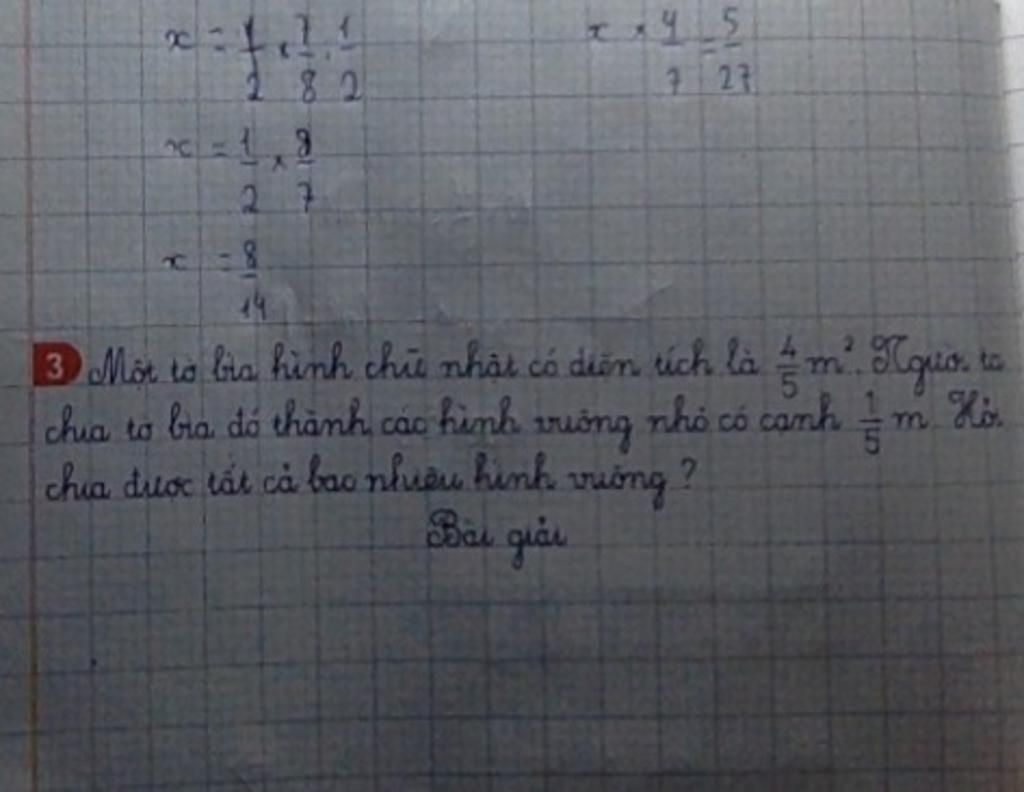 x = 1/2 × 7/8 · 1/2    x × 4/7 = 5/27
x = 1/2 × 8/7
x = 8/14
3 Một tờ bìa hình chữ nhật có diện tích là 4/5 m². Người ta
chia tờ bìa đó thành các hình vuông nhỏ có cạnh 1/5 m Hỏi
chia được tất cả bao nhiêu hình vuông?
Bài giải